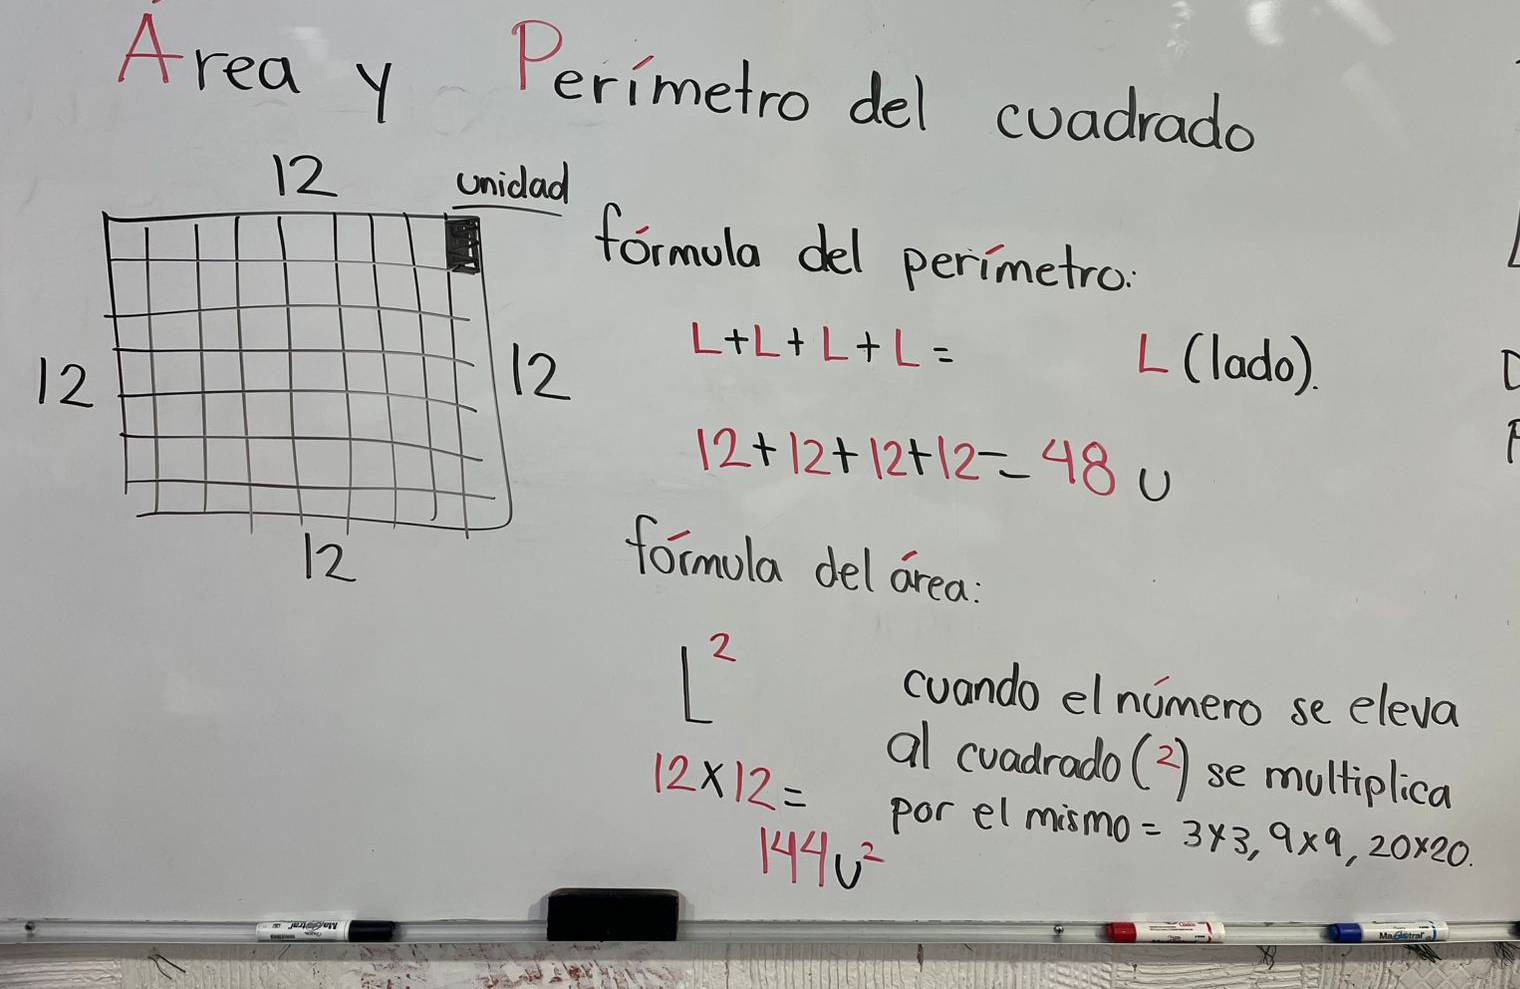 Área y Perímetro del cuadrado
12
unidad
12
12
12
fórmula del perímetro:
L+L+L+L=
L (lado).
12+12+12+12=48 u
fórmula del área:
L²
12×12=
144u²
cuando el número se eleva
al cuadrado (²) se multiplica
por el mismo = 3×3, 9×9, 20×20.
Magistral
Magistral